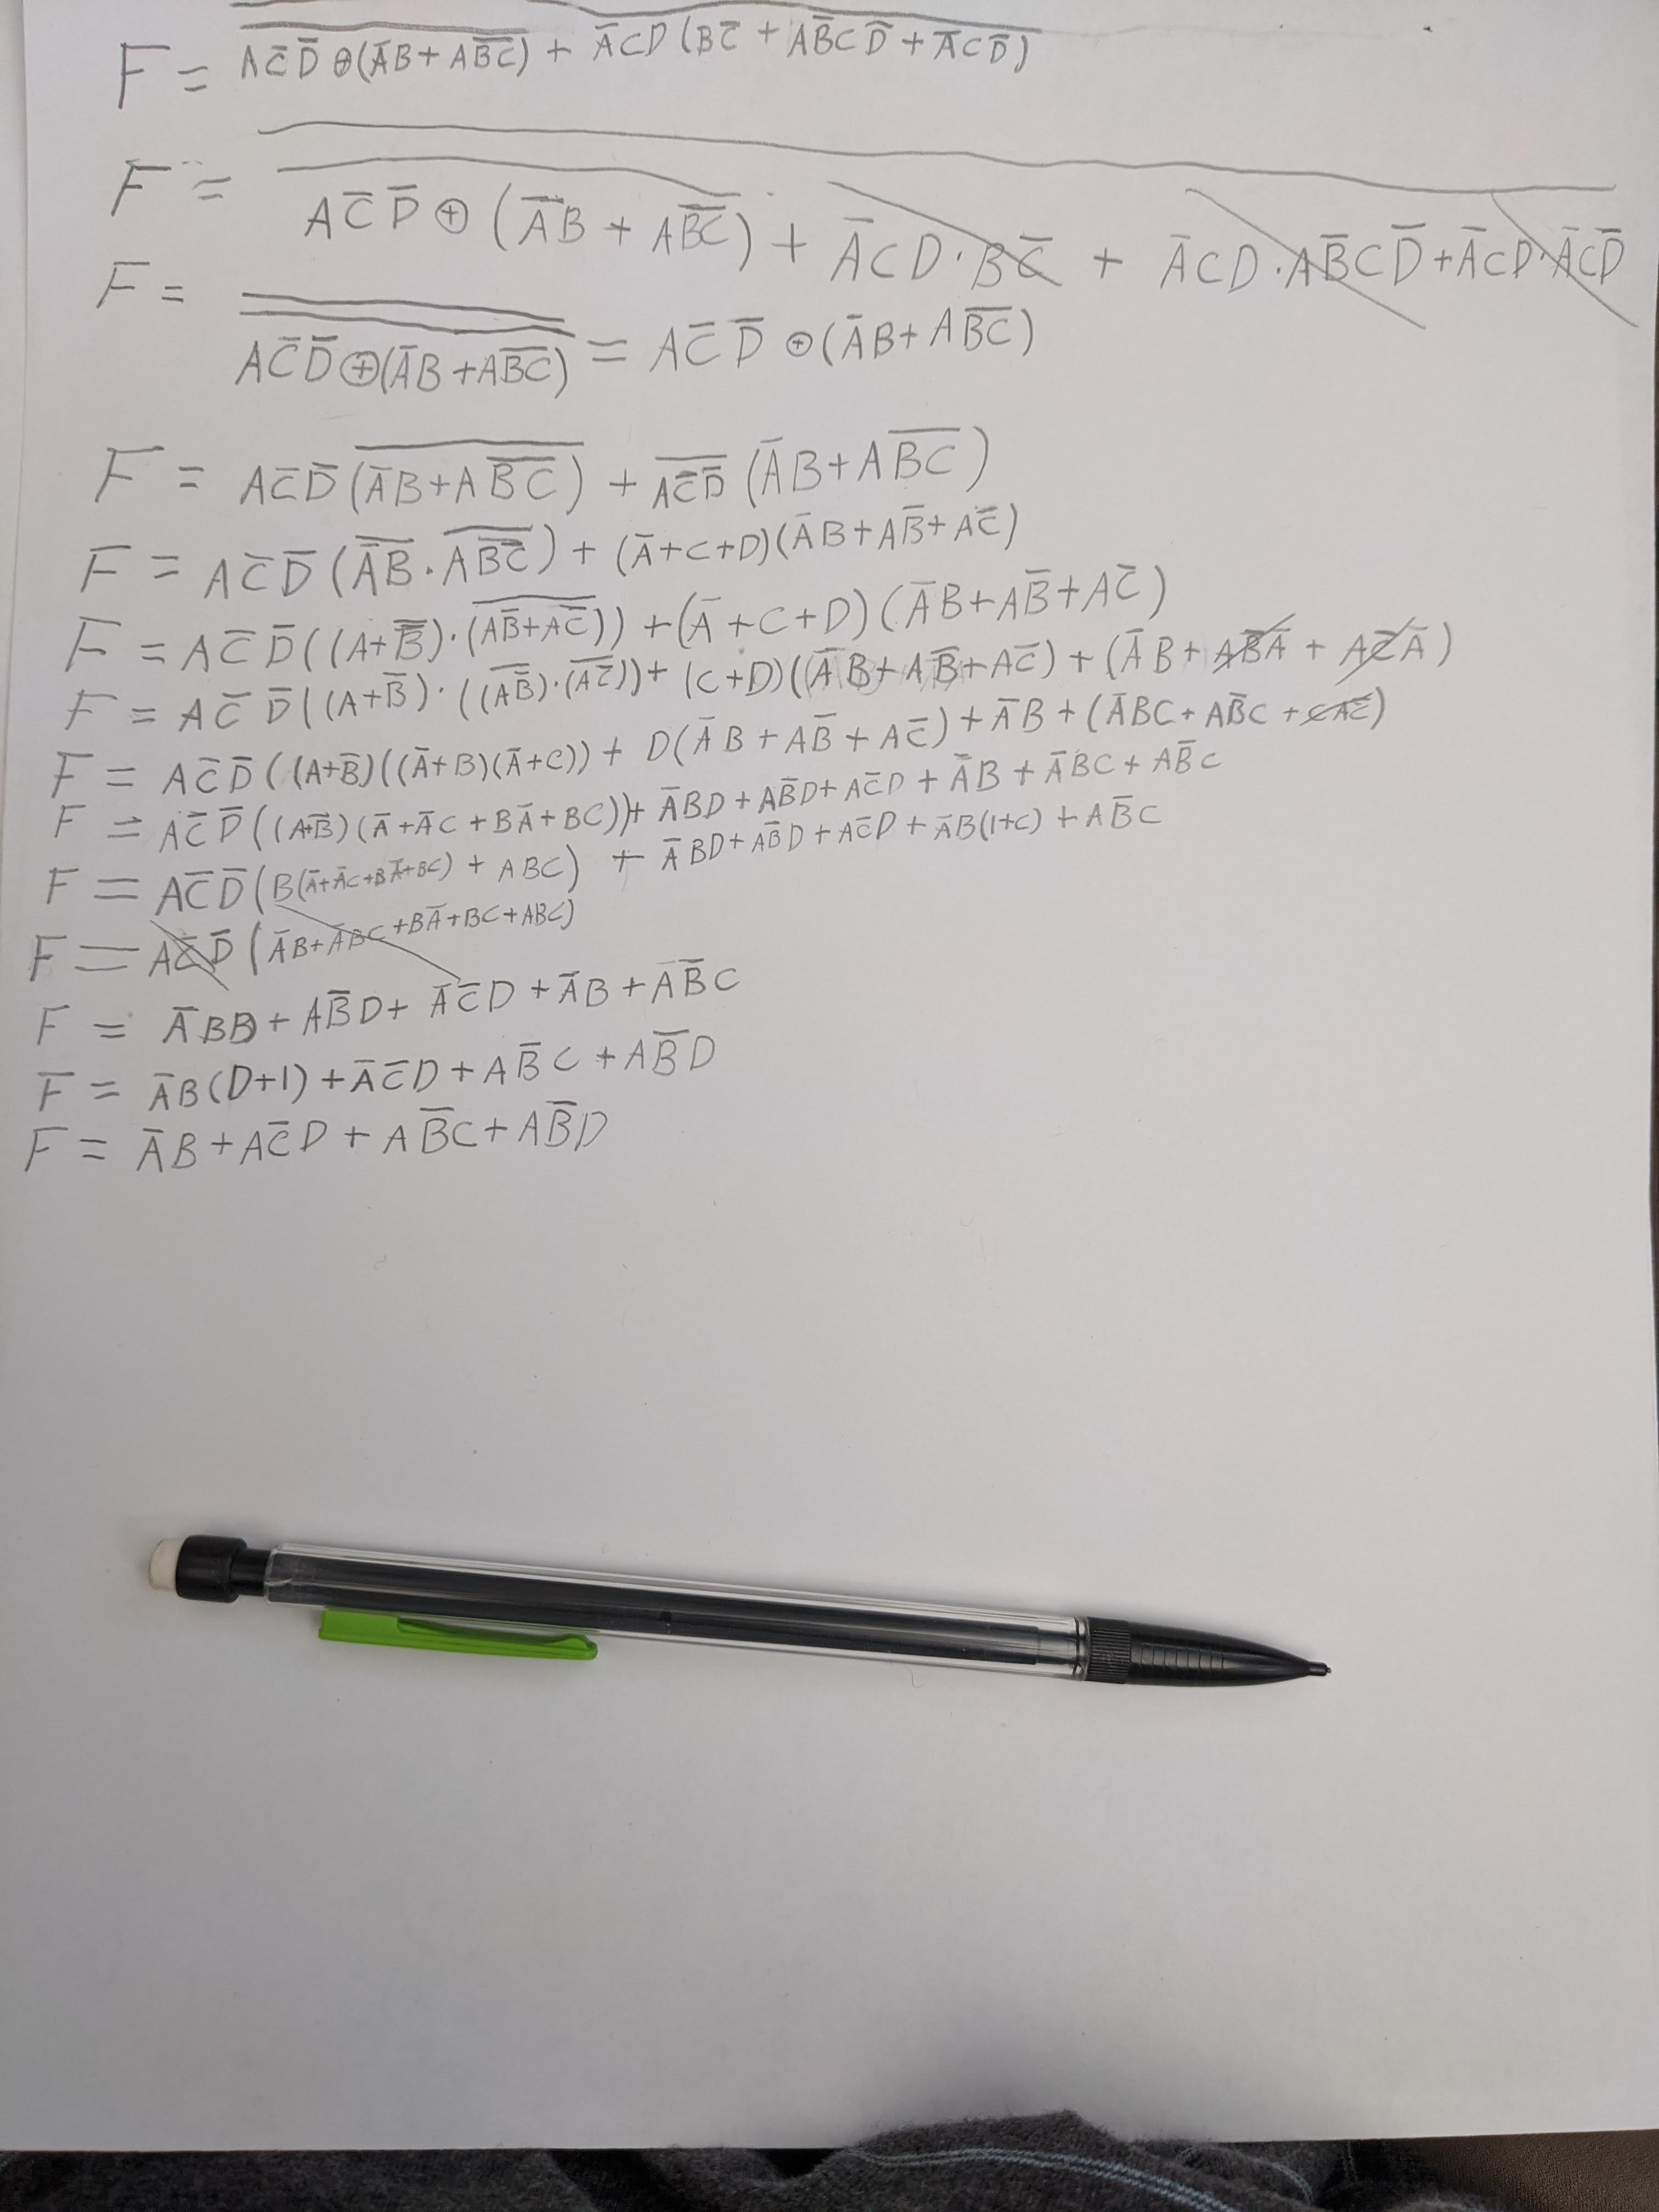 F = \overline{\overline{A\bar{C}\bar{D} ⊕ (\bar{A}B + A\overline{BC})} + \bar{A}CD(B\bar{C} + A\bar{B}C\bar{D} + \bar{A}C\bar{D})}
F = \overline{\overline{A\bar{C}\bar{D} ⊕ (\bar{A}B + A\overline{BC})} + \bar{A}CD·B\bar{C} + \bar{A}CD·A\bar{B}C\bar{D} + \bar{A}CD·\bar{A}C\bar{D}}
F = \overline{\overline{A\bar{C}\bar{D} ⊕ (\bar{A}B + A\overline{BC})}} = A\bar{C}\bar{D} ⊕ (\bar{A}B + A\overline{BC})
F = A\bar{C}\bar{D}(\overline{\bar{A}B + A\overline{BC}}) + \overline{A\bar{C}\bar{D}}(\bar{A}B + A\overline{BC})
F = A\bar{C}\bar{D}(\overline{\bar{A}B}·\overline{A\overline{BC}}) + (\bar{A}+C+D)(\bar{A}B + A\bar{B} + A\bar{C})
F = A\bar{C}\bar{D}((A+\bar{B})·(\overline{A\bar{B}+A\bar{C}})) + (\bar{A}+C+D)(\bar{A}B + A\bar{B} + A\bar{C})
F = A\bar{C}\bar{D}((A+\bar{B})·((\overline{A\bar{B}})·(\overline{A\bar{C}})) + (C+D)((\bar{A}B + A\bar{B} + A\bar{C}) + (\bar{A}B + A\bar{B}\bar{A} + A\bar{C}\bar{A})
F = A\bar{C}\bar{D}((A+\bar{B})((\bar{A}+B)(\bar{A}+C)) + D(\bar{A}B + A\bar{B} + A\bar{C}) + \bar{A}B + (\bar{A}BC + A\bar{B}C + CA\bar{C})
F = A\bar{C}\bar{D}((A+\bar{B})(\bar{A} + \bar{A}C + B\bar{A} + BC)) + \bar{A}BD + A\bar{B}D + A\bar{C}D + \bar{A}B + \bar{A}BC + A\bar{B}C
F = A\bar{C}\bar{D}(B(\bar{A}+\bar{A}C+B\bar{A}+BC) + ABC) + \bar{A}BD + A\bar{B}D + A\bar{C}D + \bar{A}B(1+C) + A\bar{B}C
F = A\bar{C}\bar{D}(\bar{A}B + \bar{A}BC + B\bar{A} + BC + ABC)
F = \bar{A}BD + A\bar{B}D + \bar{A}\bar{C}D + \bar{A}B + A\bar{B}C
F = \bar{A}B(D+1) + \bar{A}\bar{C}D + A\bar{B}C + A\bar{B}D
F = \bar{A}B + A\bar{C}D + A\bar{B}C + A\bar{B}D